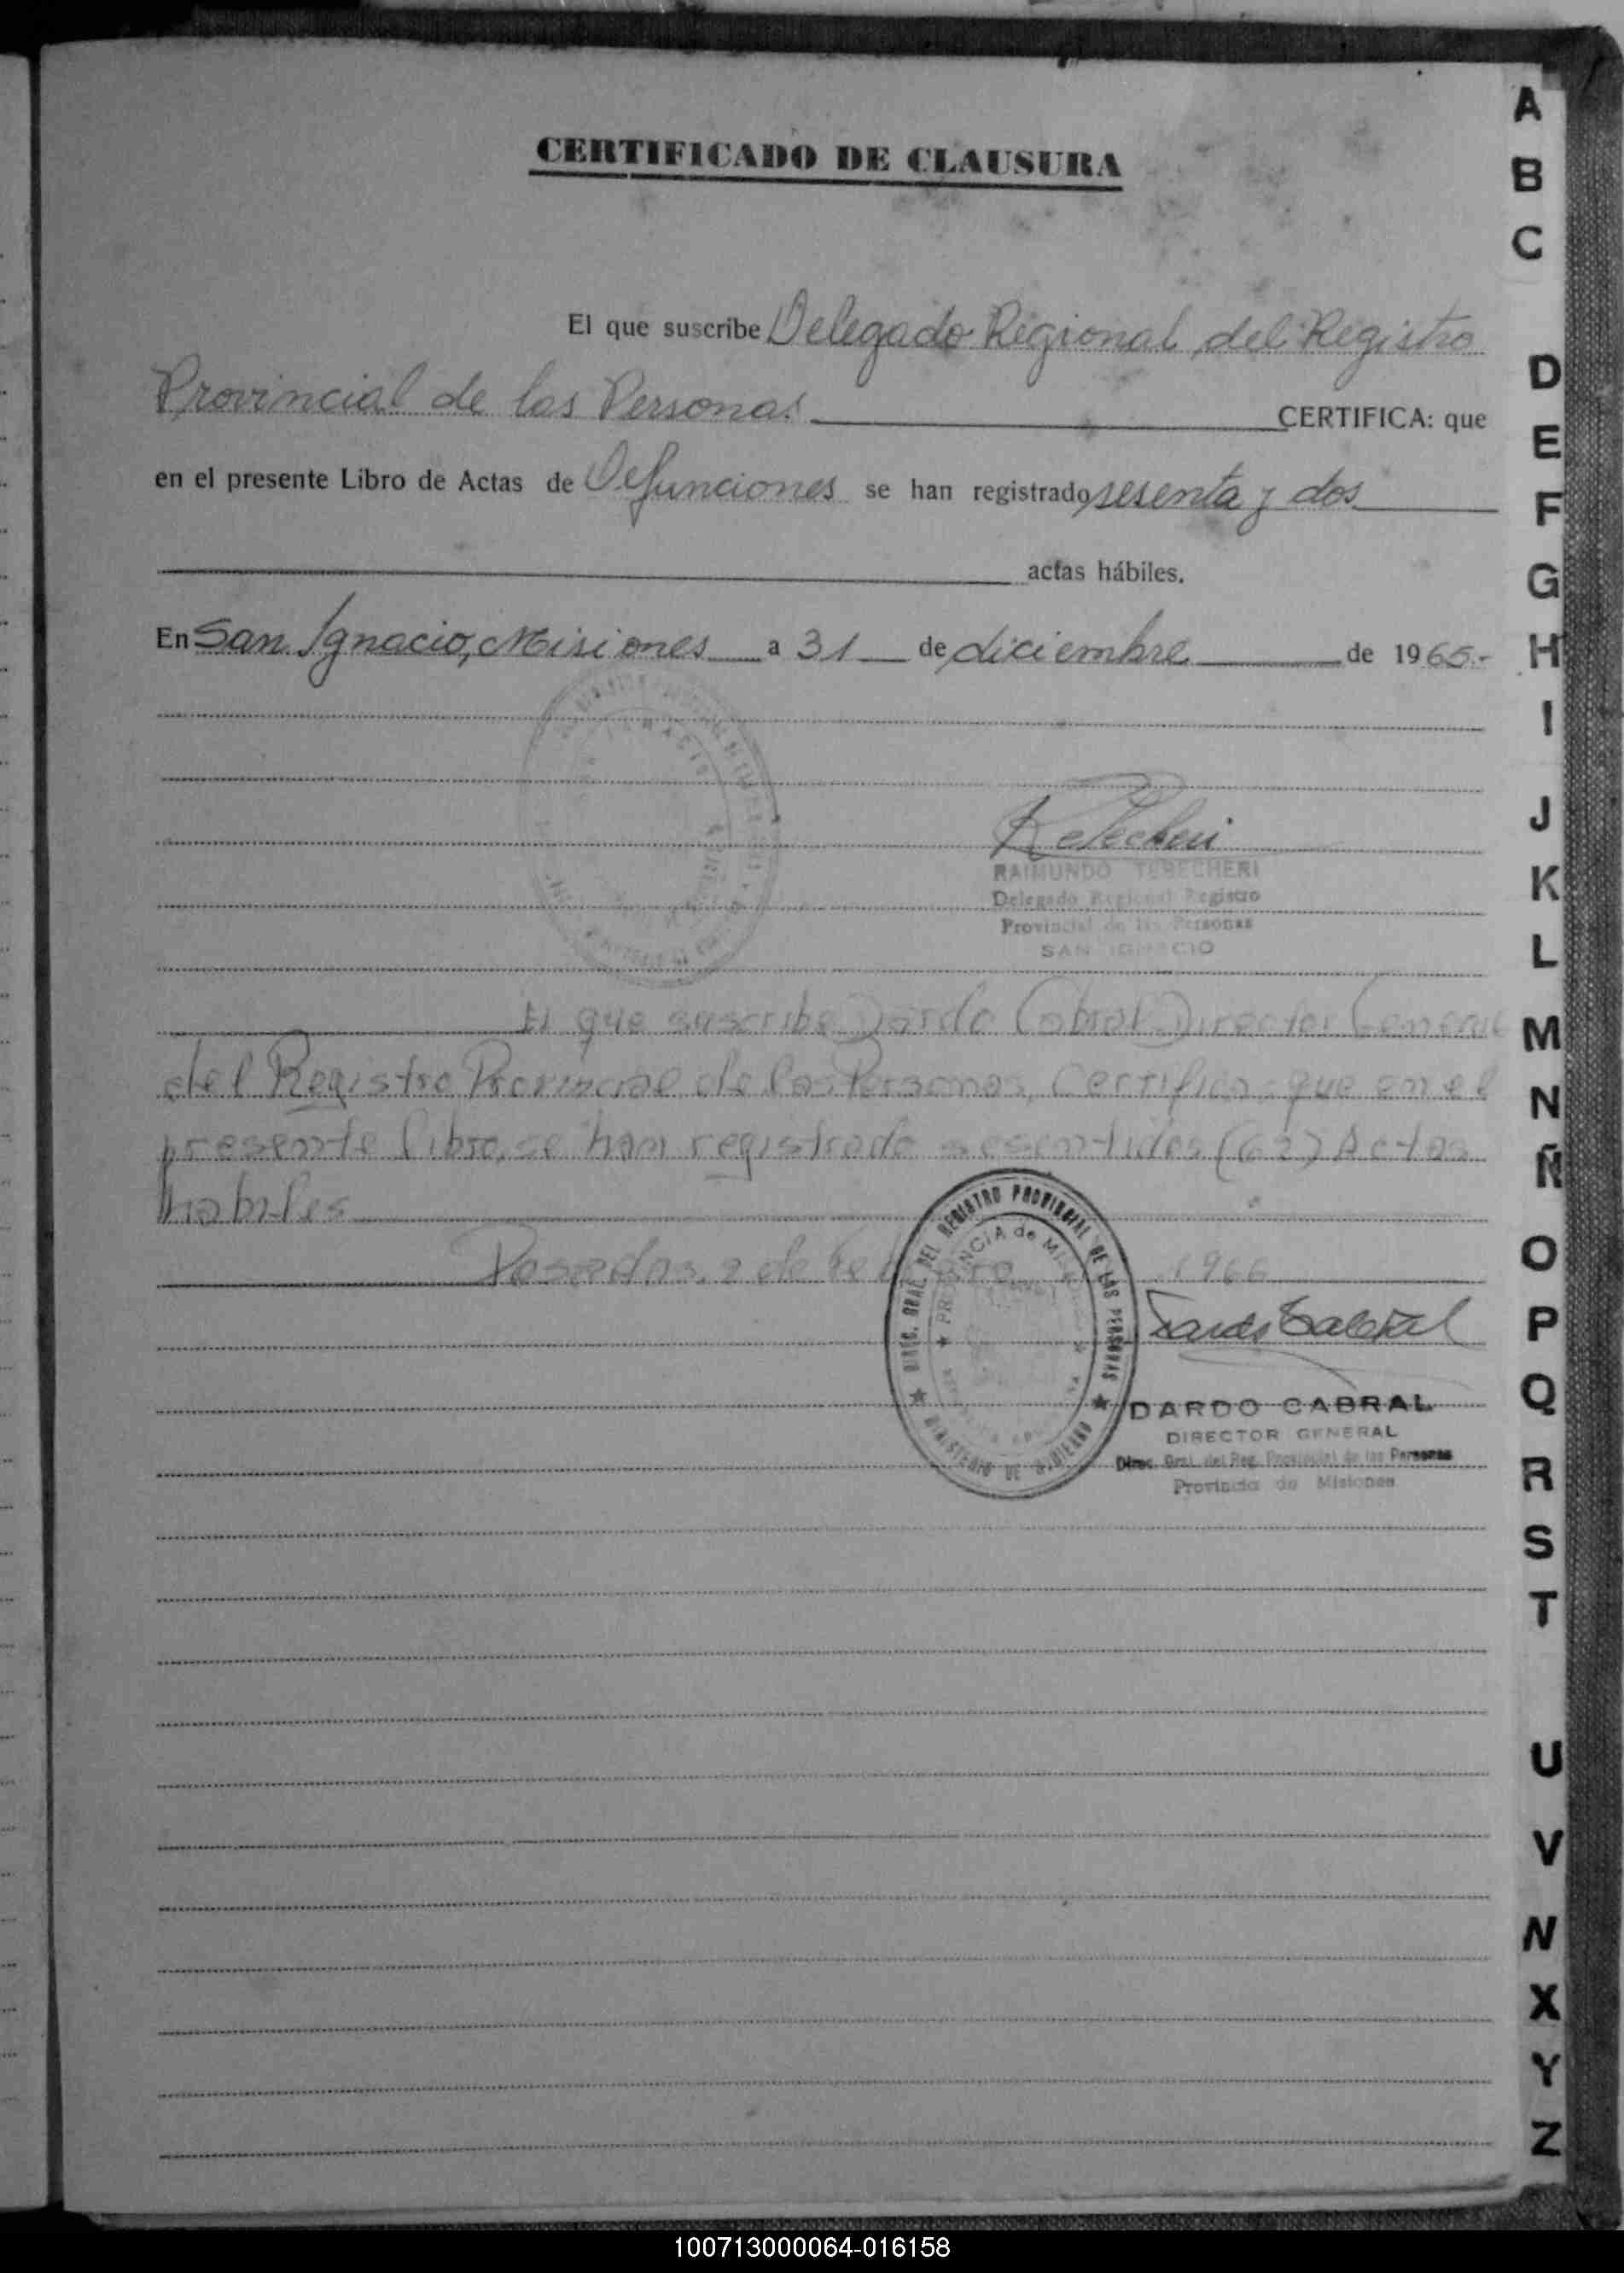 CERTIFICADO DE CLAUSURA
El que suscribe Delegado Regional del Registro
Provincial de las Personas CERTIFICA: que
en el presente Libro de Actas de Defunciones se han registrado sesenta y dos
actas hábiles.
En San Ignacio, Misiones a 31 de diciembre de 1965.-
RAIMUNDO TERECHERI
Delegado Regional Registro
Provincial de las Personas
SAN IGNACIO
El que suscribe Dardo Cabral Director General
del Registro Provincial de las Personas, Certifica: que en el
presente libro, se han registrado sesentidos (62) Actas
habiles
Posadas, 2 de Febrero 1966
DIREC. GRAL. DEL REGISTRO PROVINCIAL DE LAS PERSONAS
PROVINCIA de MISIONES
MINISTERIO DE GOBIERNO
Dardo Cabral
DARDO CABRAL
DIRECTOR GENERAL
Direc. Gral. del Reg. Provincial de las Personas
Provincia de Misiones
A
B
C
D
E
F
G
H
I
J
K
L
M
N
Ñ
O
P
Q
R
S
T
U
V
N
X
Y
Z
100713000064-016158